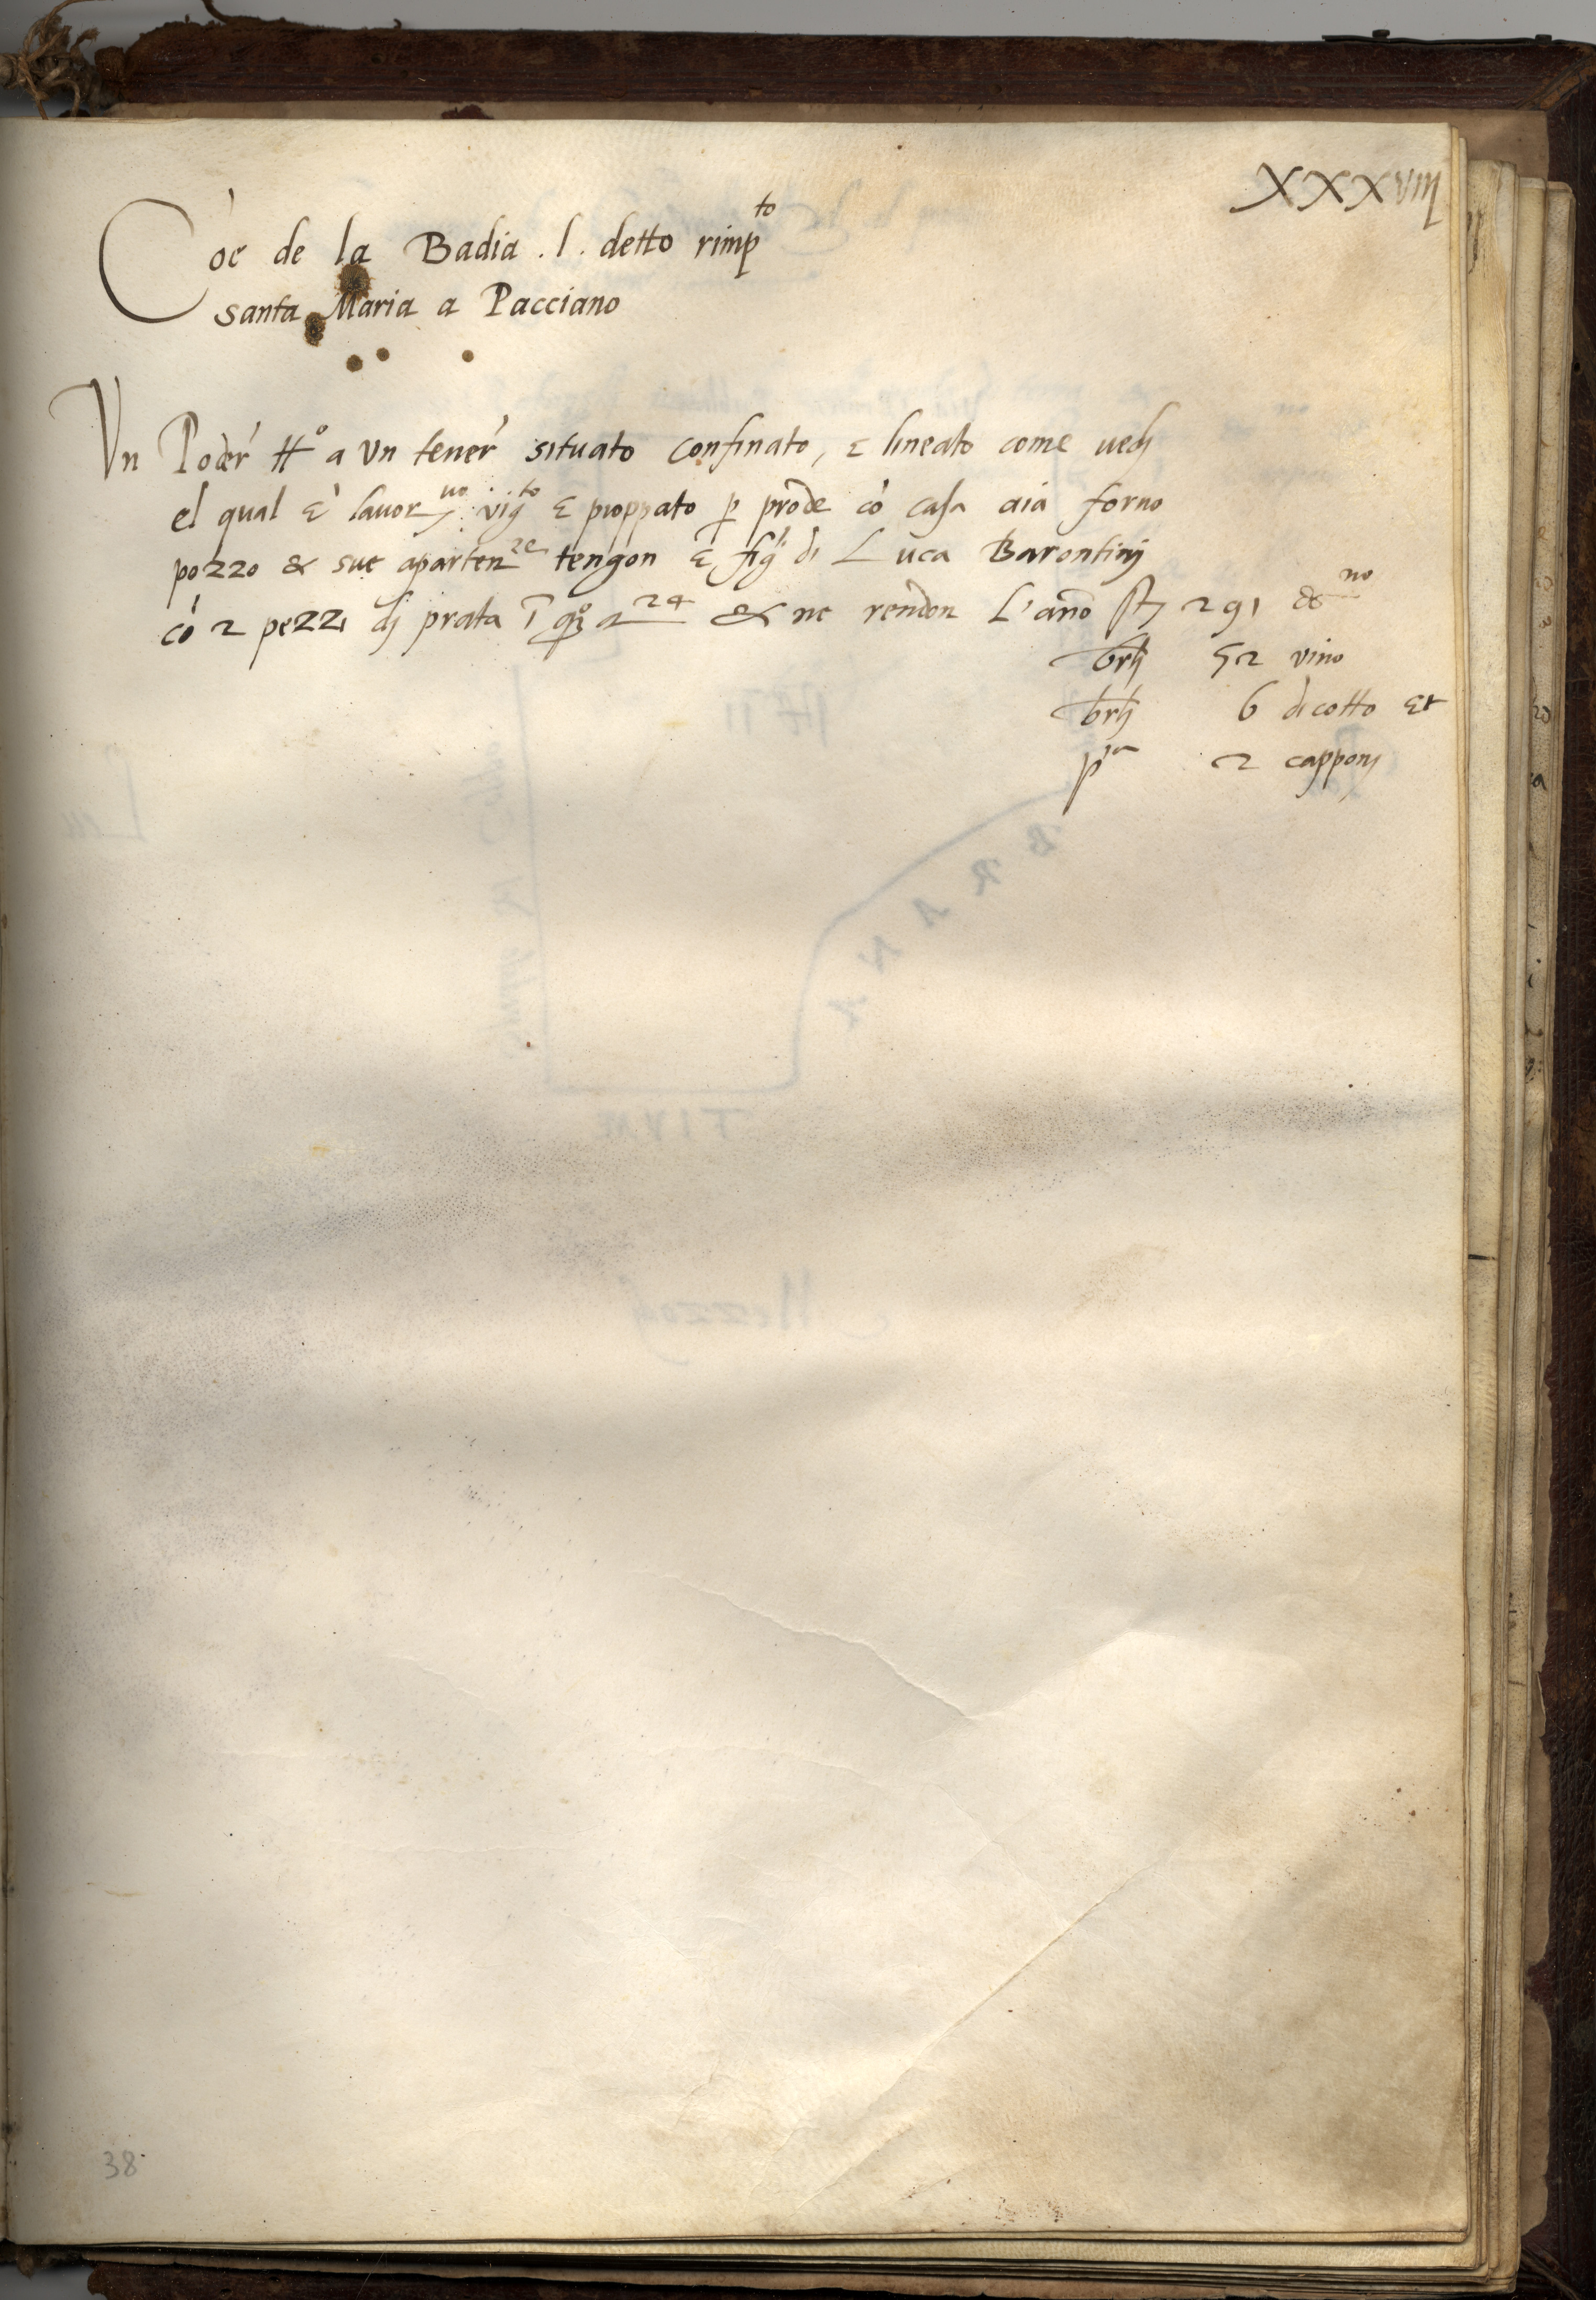 XXXVIII
Cōe de la Badia .l. detto rimp^to
santa Maria a Pacciano
Vn Poder' tt° a vn tener' situato confinato, e lineato come vedj
el qual è lauor^uo vig^to e pioppato p prode cō casa aia forno
pozzo & sue aparten^ze tengon è fig^li di Luca Barontinj
cō 2 pezzi dj prata ī q. a 24 & ne rendon L'año st 291 g^no
brlj 52 vino
brlj 6 di cotto et
p^a 2 capponj
38